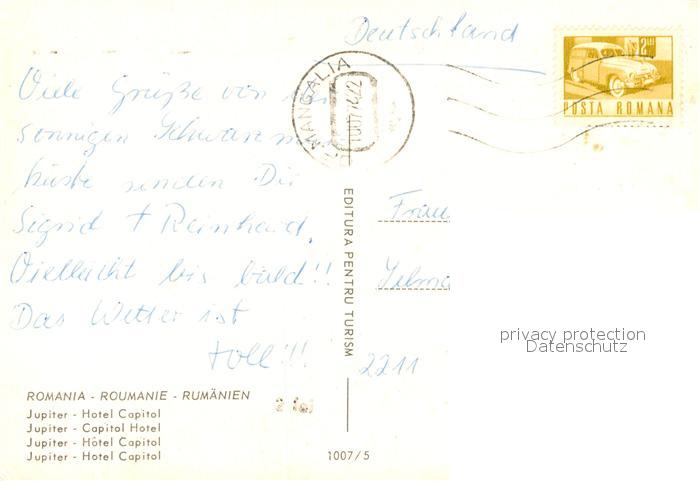 Deutschland
2 LEI
POSTA ROMANA
MANGALIA
Viele Grüße von
sonnigen Schwarzm
küste senden Dir
Sigrid + Reinhard.
Vielleicht bis bald!!
Das Wetter ist
toll!!!
EDITURA PENTRU TURISM
Frau
Selma
2211
privacy protection
Datenschutz
ROMANIA - ROUMANIE - RUMÄNIEN
Jupiter - Hotel Capitol
Jupiter - Capitol Hotel
Jupiter - Hôtel Capitol
Jupiter - Hotel Capitol
2 lei
1007/5